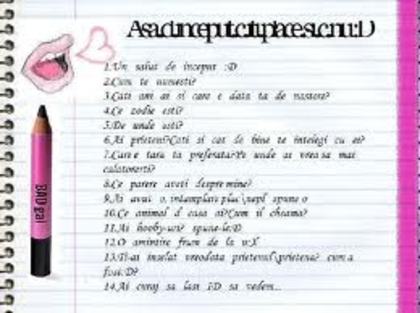 1.Un salut de inceput :D
2.Cum te numesti?
3.Cati ani ai si care e data ta de nastere?
4.Ce zodie esti?
5.De unde esti?
6.Ai prieteni?Cati si cat de bine te intelegi cu ei?
7.Care e tara ta preferata?Pe unde ai vrea sa mai
calatoresti?
8.Ce parere aveti despre mine?
9.Ai avut o intamplare spune o
10.Ce animal d casa ai?Cum il cheama?
11.Ai hooby-uri? spune-le:D
12.O amintire frum de la u:X
13.Ti-ai inselat vreodata prietenul\prietena? cum a
fost:D?
14.Ai curaj sa lasi sa vedem...
BAD gal